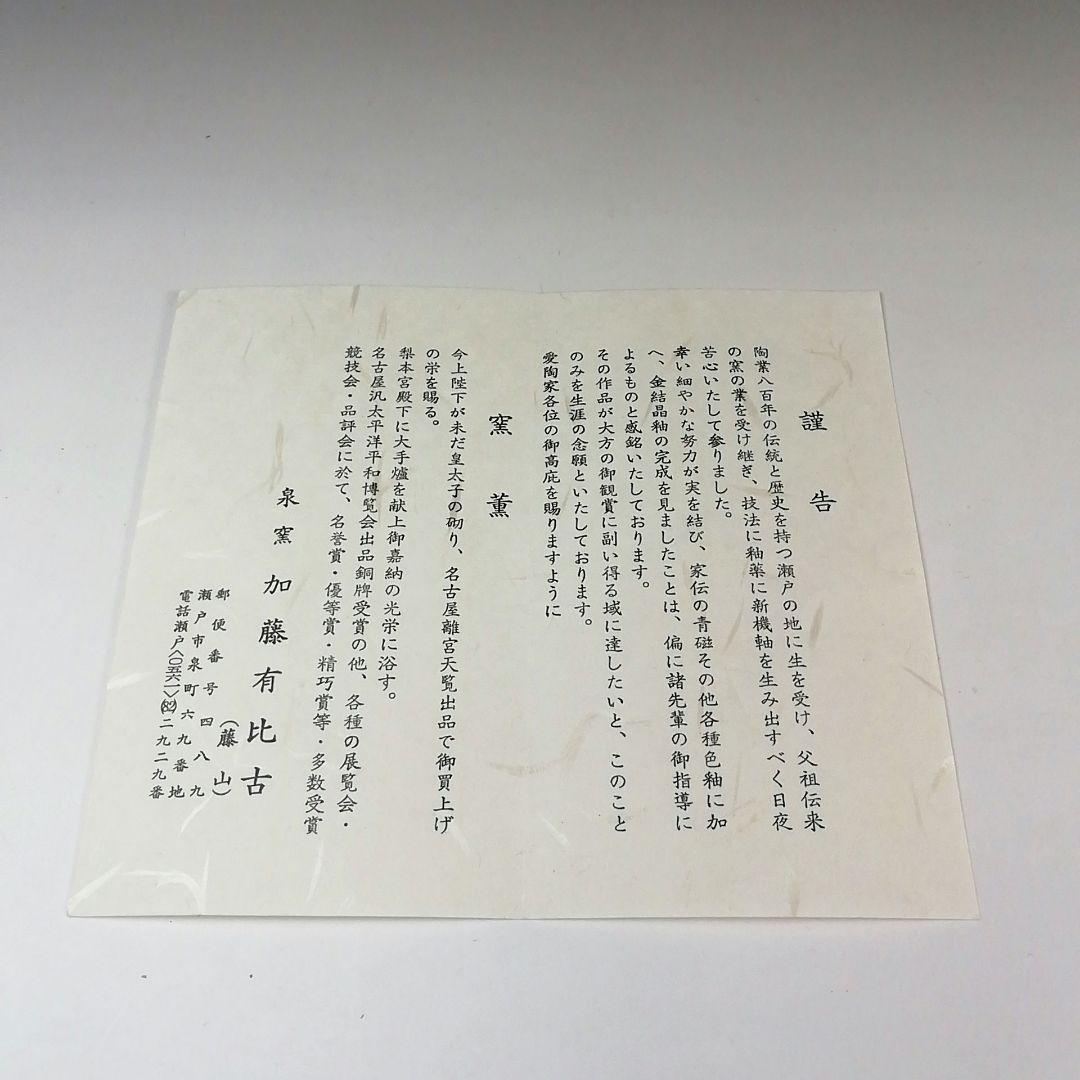 謹告
陶業八百年の伝統と歴史を持つ瀬戸の地に生を受け、父祖伝来
の窯の業を受け継ぎ、技法に釉薬に新機軸を生み出すべく日夜
苦心いたして参りました。
幸い細やかな努力が実を結び、家伝の青磁その他各種色釉に加
へ、金結晶釉の完成を見ましたことは、偏に諸先輩の御指導に
よるものと感銘いたしております。
その作品が大方の御観賞に副い得る域に達したいと、このこと
のみを生涯の念願といたしております。
愛陶家各位の御高庇を賜りますように
窯薫
今上陛下が未だ皇太子の砌り、名古屋離宮天覧出品で御買上げ
の栄を賜る。
梨本宮殿下に大手爐を献上御嘉納の光栄に浴す。
名古屋汎太平洋平和博覧会出品銅牌受賞の他、各種の展覧会・
競技会・品評会に於て、名誉賞・優等賞・精巧賞等・多数受賞
泉窯 加藤有比古
(藤山)
郵便番号四八九
瀬戸市泉町六九番地
電話瀬戸〈〇五六一〉(82)二九二九番